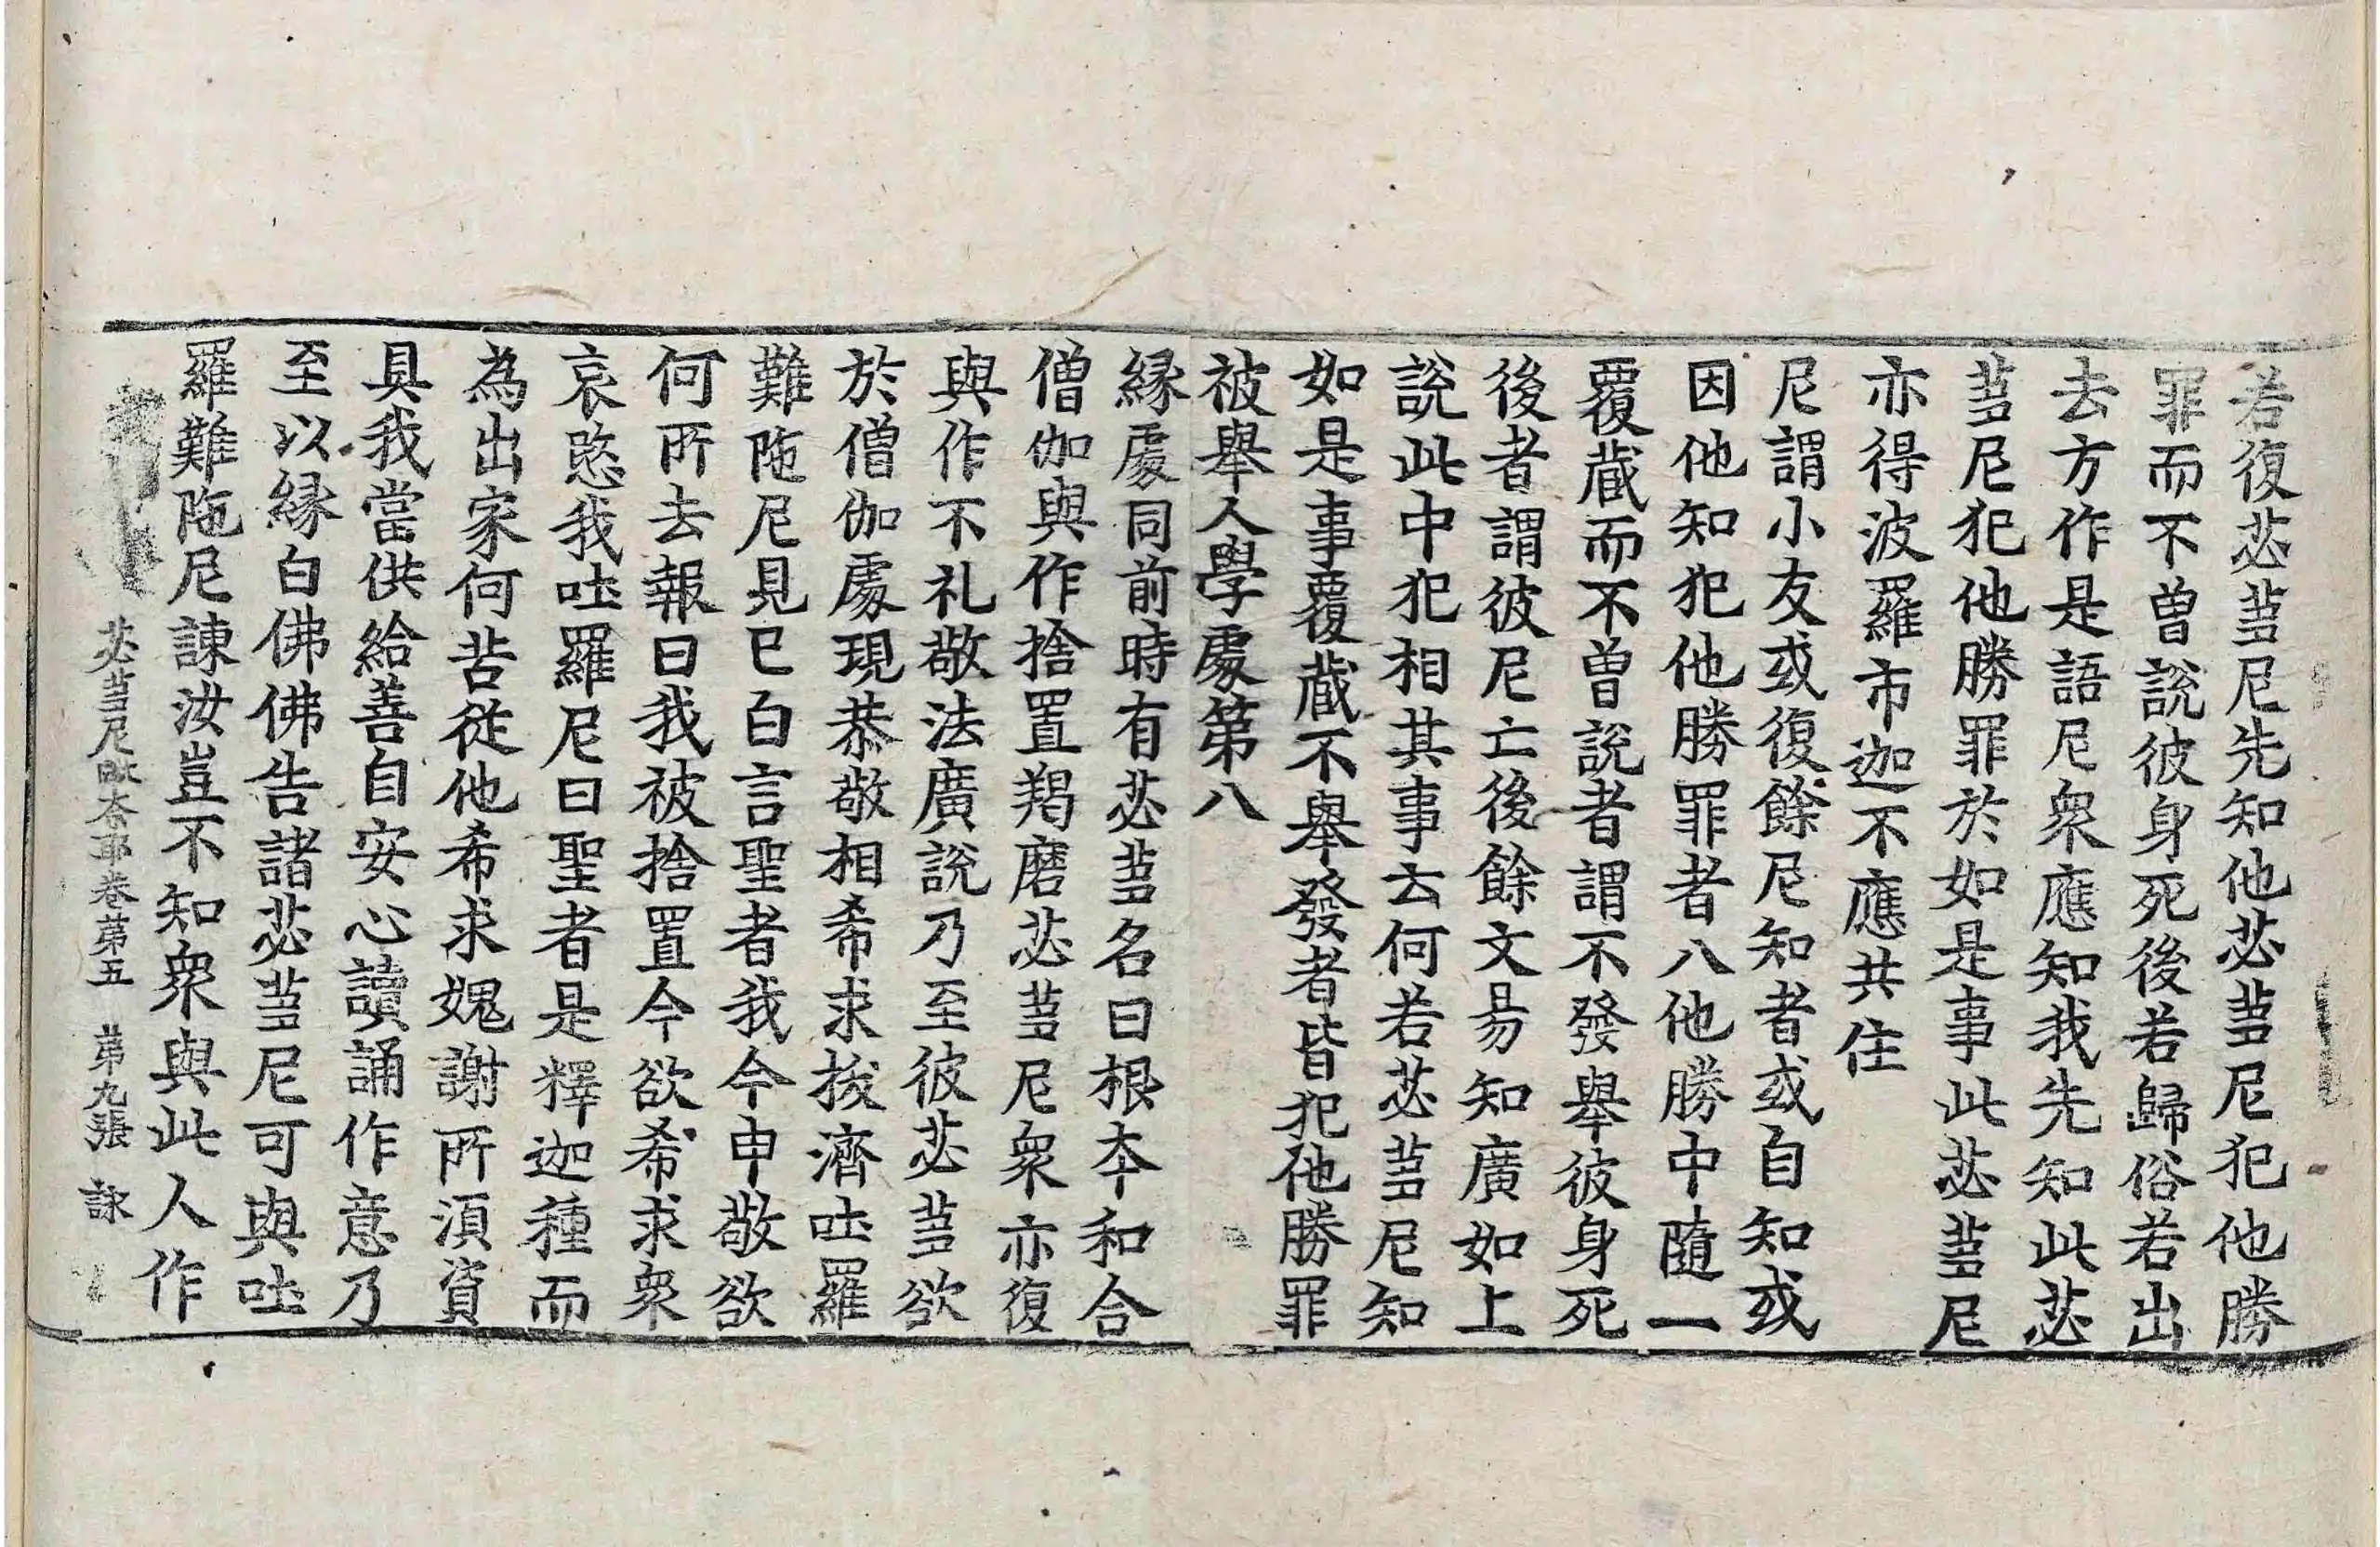 若復苾蒭尼先知他苾蒭尼犯他勝
罪而不曽說彼身死後若歸俗若出
去方作是語尼衆應知我先知此苾
蒭尼犯他勝罪於如是事此苾蒭尼
亦得波羅市迦不應共住
尼謂小友或復餘尼知者或自知或
因他知犯他勝罪者八他勝中隨一
覆蔵而不曽說者謂不發舉彼身死
後者謂彼尼亡後餘文易知廣如上
說此中犯相其事云何若苾蒭尼知
如是事覆蔵不舉發者皆犯他勝罪
被舉人學處第八
縁處同前時有苾蒭名曰根夲和合
僧伽與作捨置羯磨苾蒭尼衆亦復
與作不礼敬法廣說乃至彼苾蒭欲
於僧伽處現恭敬相希求拔濟吐羅
難陁尼見已白言聖者我今申敬欲
何所去報曰我被捨置今欲希求衆
哀愍我吐羅尼曰聖者是釋迦種而
為出家何苦從他希求媿謝所湏資
具我當供給善自安心讀誦作意乃
至以縁白佛佛告諸苾蒭尼可與吐
羅難陁尼諫汝豈不知衆與此人作
苾蒭尼毗柰耶卷第五　第九張　詠